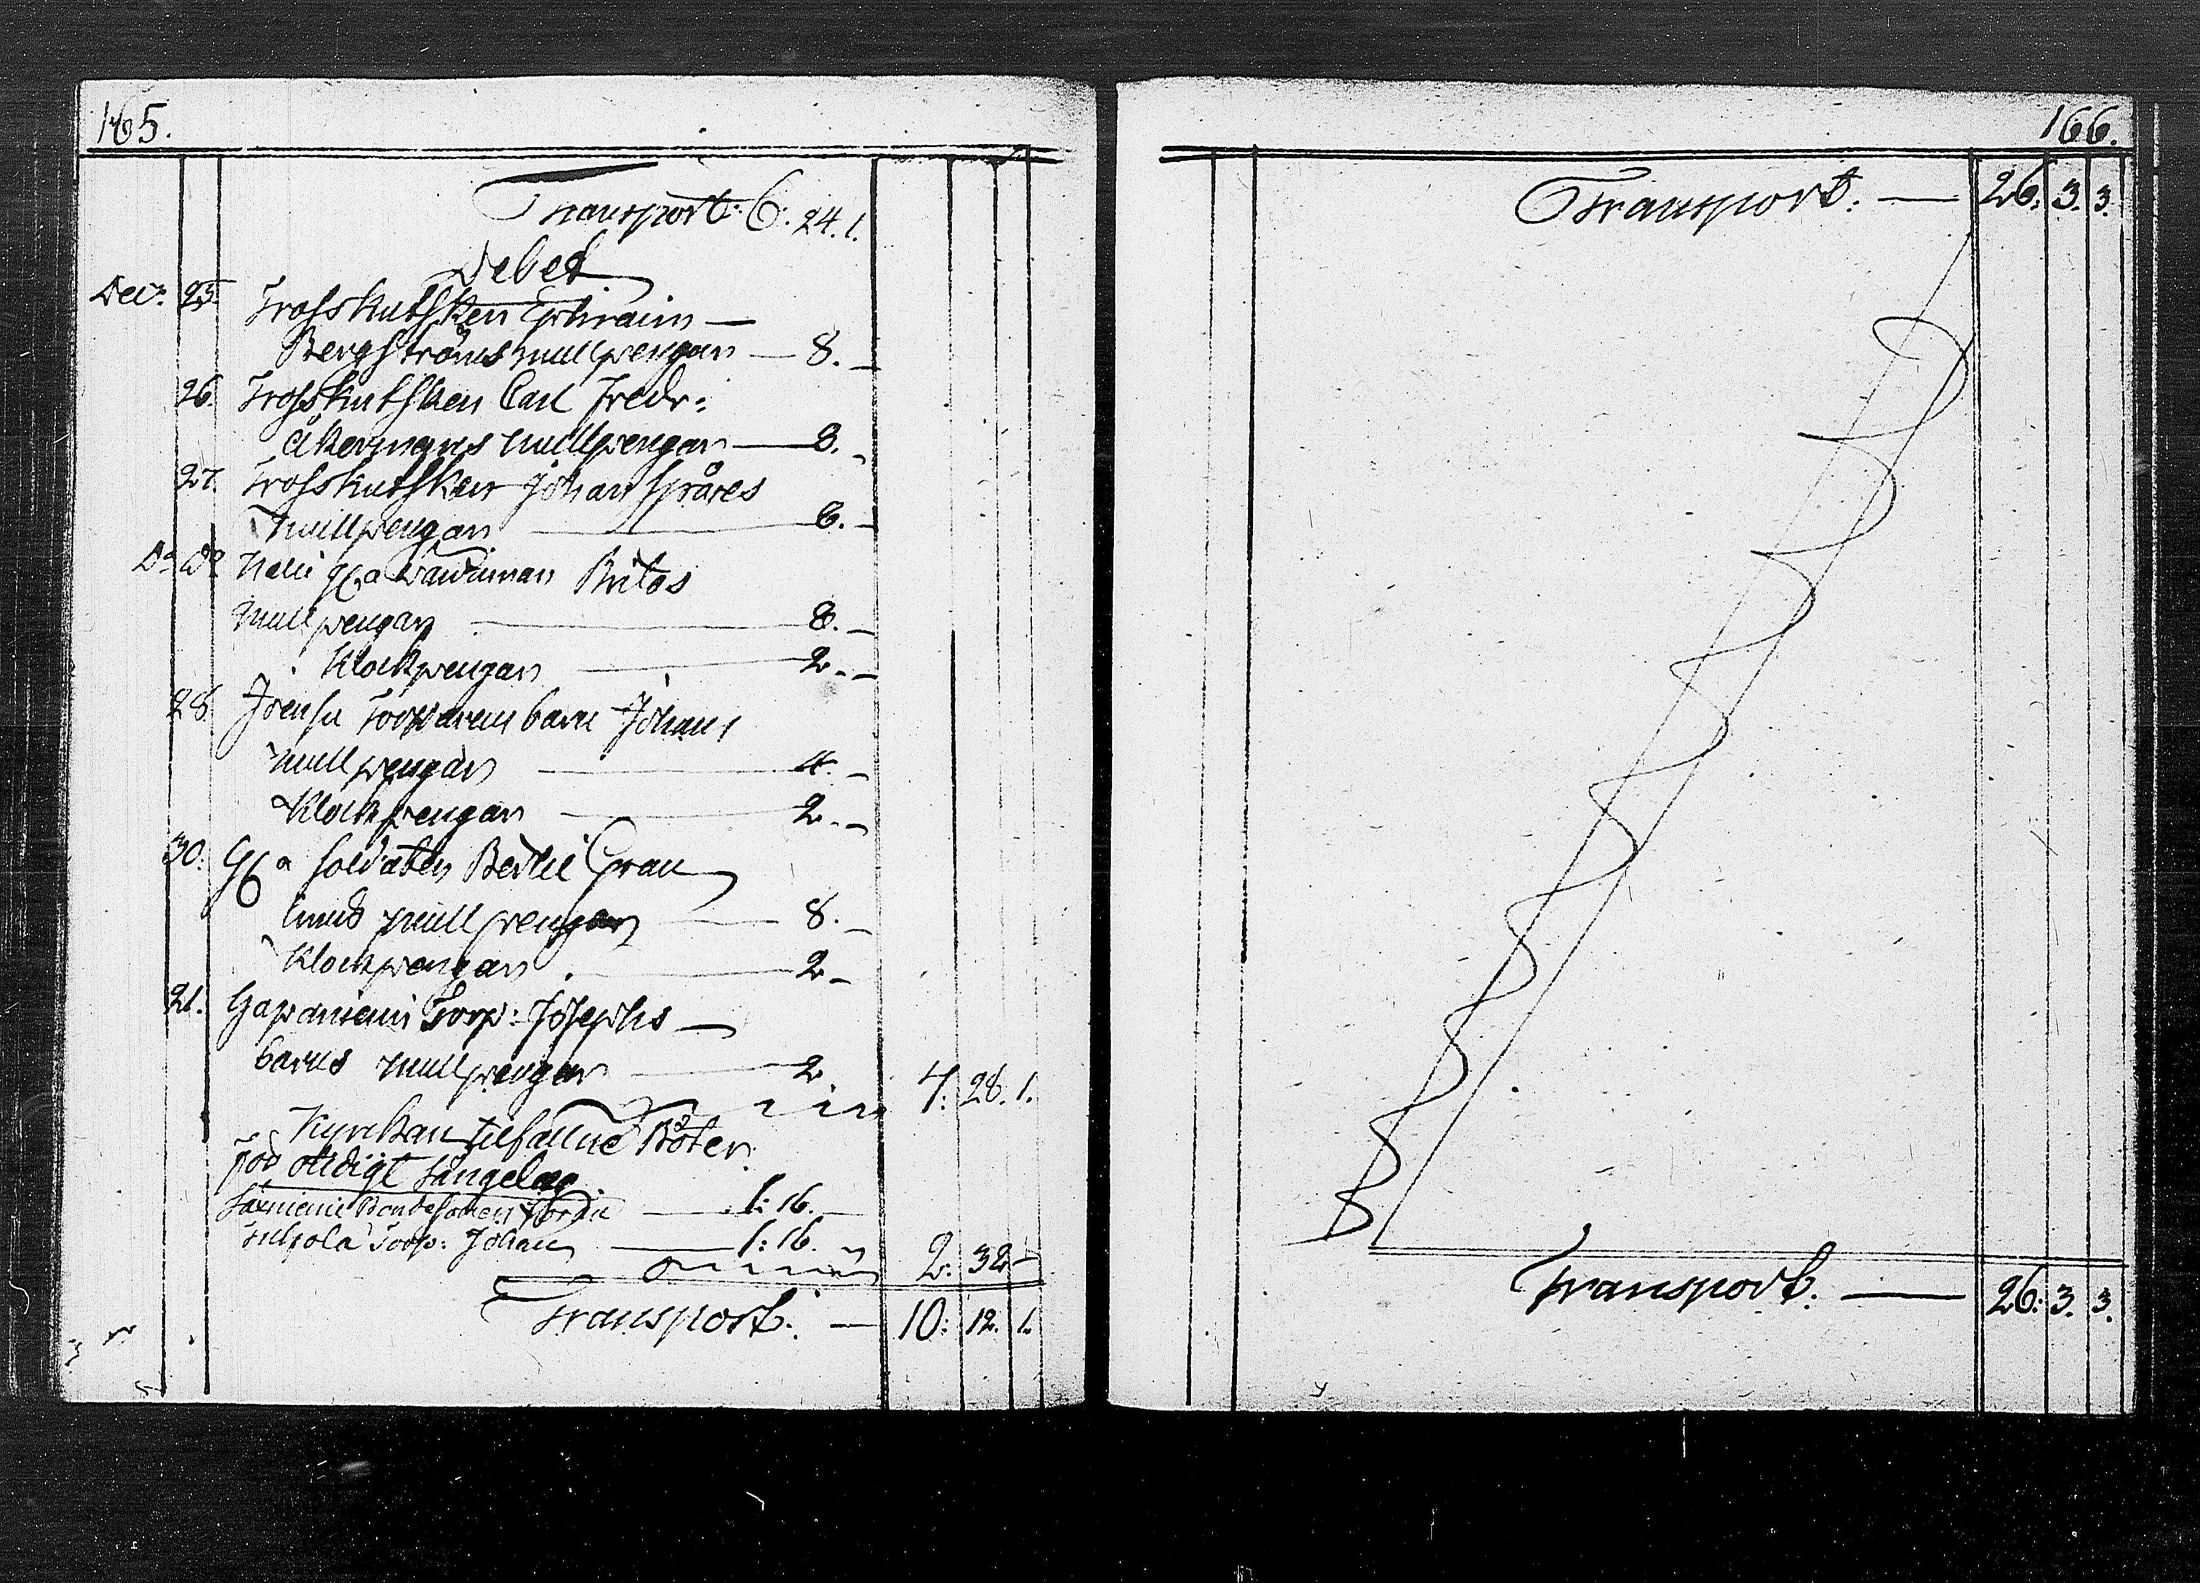 165.
Transport: 6. 24. 1.
Debet
Dec: 25. Trosskuthsken Ephraim —
Bergströms mullpengar — 8. —
26. Trosskuthsken Carl Fredr:
Åkermans mullpengar — 8. —
27. Trosskuthsken Johan Spåres
mullpengar — 6. —
Do Do Britas
mullpengar — 8. —
Klockpengar — 2. —
28. Torparens barn Johans
mullpengar — 4. —
Klockpengar — 2. —
30. Gla Soldaten Bertil Gran
mullpengar — 8. —
Klockpengar — 2 —
21. Torp: Josephs —
barns mullpengar — 2. 7: 28. 1.
Kyrckan tilfallne Böter
för otidigt sängelag.
Bondesonen — 1: 16. —
Torp: Johan — 1: 16. 2: 32 —
Transport: — 10: 12. 1.
166.
Transport: — 26: 3. 3.
Transport: — 26: 3. 3.